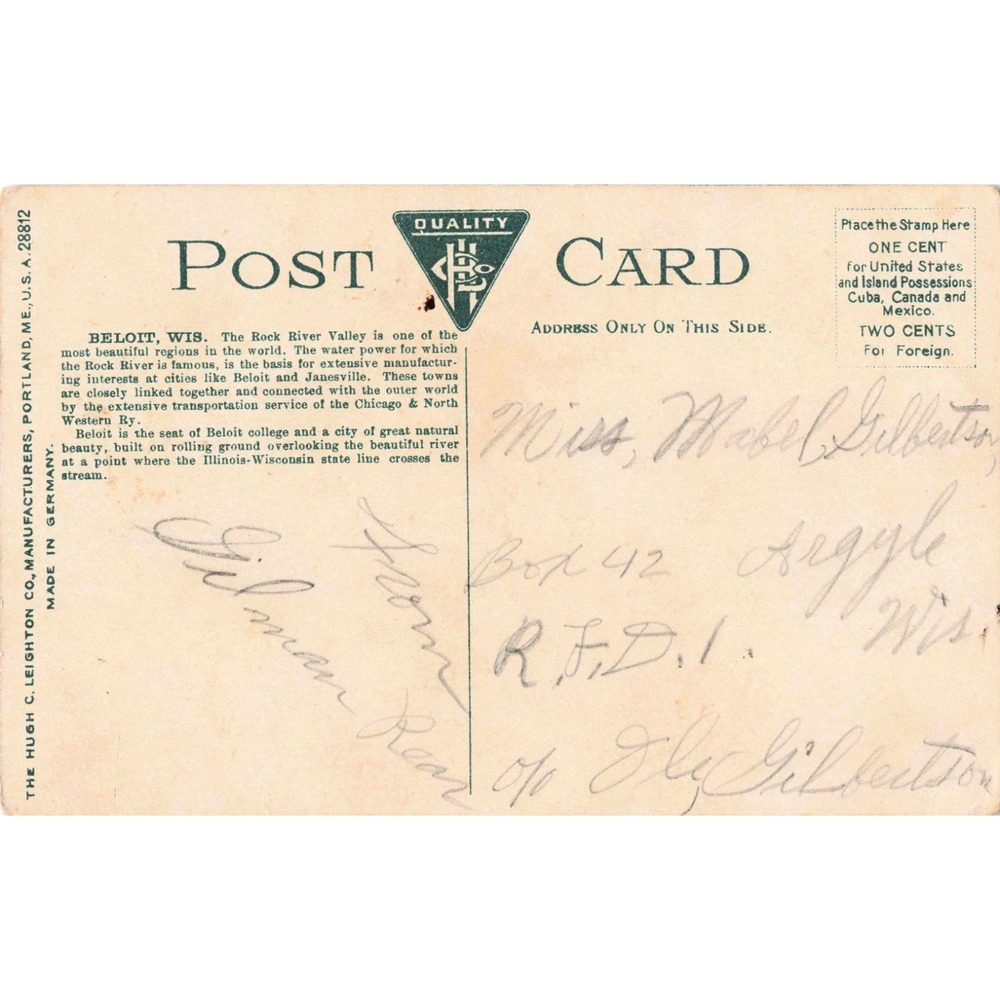 THE HUGH C. LEIGHTON CO., MANUFACTURERS, PORTLAND, ME., U.S.A. 28812
MADE IN GERMANY.
POST CARD
QUALITY
ADDRESS ONLY ON THIS SIDE.
Place the Stamp Here
ONE CENT
for United States
and Island Possessions
Cuba, Canada and
Mexico.
TWO CENTS
For Foreign.
BELOIT, WIS. The Rock River Valley is one of the
most beautiful regions in the world. The water power for which
the Rock River is famous, is the basis for extensive manufactur-
ing interests at cities like Beloit and Janesville. These towns
are closely linked together and connected with the outer world
by the extensive transportation service of the Chicago & North
Western Ry.
Beloit is the seat of Beloit college and a city of great natural
beauty, built on rolling ground overlooking the beautiful river
at a point where the Illinois-Wisconsin state line crosses the
stream.
From
Gilman
Miss, Mabel Gilbertson,
Box 42 Argyle
Wis.
R.F.D. 1.
c/o Ole, Gilbertson